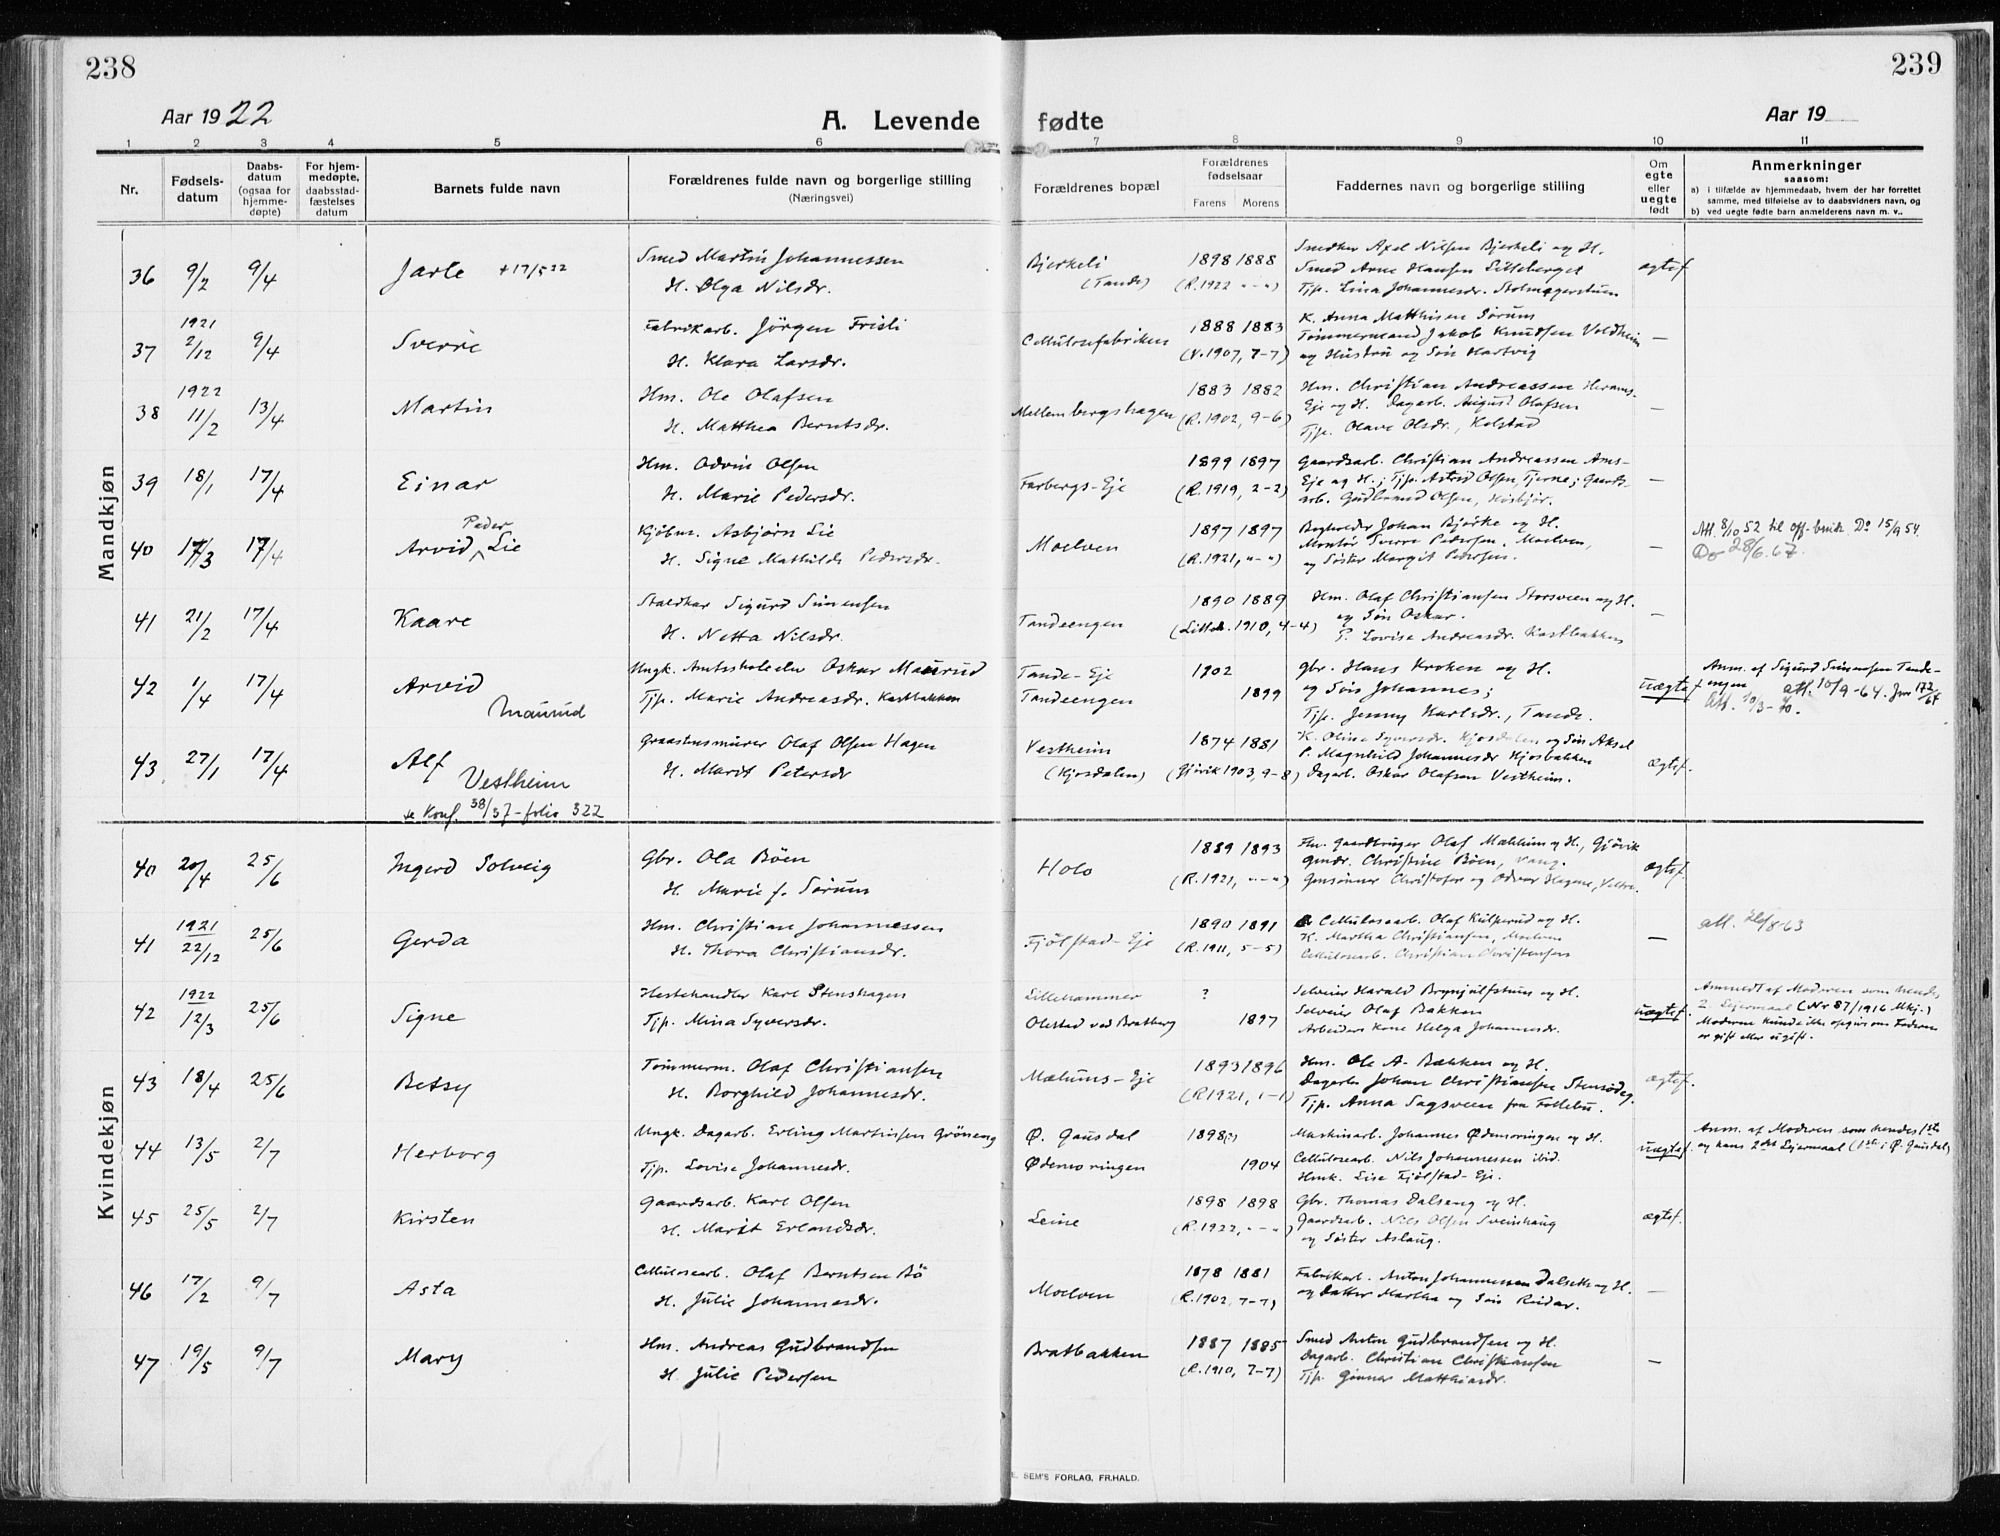 238
239
Aar 1922
A. Levende fødte
Aar 19
1 2 3 4 5 6 7 8 9 10 11
Nr.
Fødsels-
datum
Daabs-
datum
(ogsaa for
hjemme-
døpte)
For hjem-
medøpte,
daabsstad-
fæstelses
datum
Barnets fulde navn
Forældrenes fulde navn og borgerlige stilling
(Næringsvei)
Forældrenes bopæl
Forældrenes
fødselsaar
Farens Morens
Faddernes navn og borgerlige stilling
Om
egte
eller
uegte
født
Anmerkninger
saasom:
a) i tilfælde av hjemmedaab, hvem der har forrettet
samme, med tilføielse av to daabsvidners navn, og
b) ved uegte fødte barn anmelderens navn m. v..
Mandkjøn
36 9/2 9/4 Jarle +17/5 22
Smed Martin Johannessen
H. Olga Nilsdr.
Bjerkeli
(Tande)
1898 1888
(R.1922 "-")
Snedker Axel Nilsen Bjerkeli og H.
Smed Arne Hansen Lilleberget
Tjp. Lina Johannesdr. Stolmagerstuen
ægtef.
37 1921 2/12 9/4 Sverre
Fabrikarb. Jörgen Fristi
H. Klara Larsdr.
Cellulosefabriken
1888 1883
(V.1907, 7-7)
K. Anna Matthisen Sørum
Tømmermand Jakob Knudsen Voldheim
og Hustru og Søn Hartvig
—
38 1922 11/2 13/4 Martin
Hm. Ole Olafsen
H. Matthea Berntsdr.
Mellembergshagen
1883 1882
(R.1902, 9-6)
Hm. Christian Andreassen Herams-
Eje og H. Dagarb. August Olafsen
Tjp. Olave Olsdr., Kolstad
—
39 18/1 17/4 Einar
Hm. Odvin Olsen
H. Marie Pedersdr.
Farbergs-Eje
1899 1897
(R.1919, 2-2)
Gaardsarb. Christian Andreassen Ams-
Eje og H.; Tjp. Astrid Olsen Tjerne; Gaards-
arb. Gudbrand Olsen, Hosbjør.
—
40 17/3 17/4 Arvid Peder Lie
Kjøbm. Asbjørn Lie
H. Signe Mathilde Pedersdr.
Moelven
1897 1897
(R.1921, "-")
Bogholder Johan Bjørke og H.
Montör Sverre Pedersen, Moelven,
og Søster Margit Pedersen.
—
Att. 8/10 52 til off. bruk. Do 15/9 54.
Do 28/6.67.
41 21/2 17/4 Kaare
Staldkar Sigurd Simensen
H. Netta Nilsdr.
Tandeengen
1890 1889
(Lilleh. 1910, 4-4)
Hm. Olaf Christiansen Storsveen og H.
og Søn Oskar.
P. Lovise Andreasdr. Kastbakken
—
42 1/4 17/4 Arvid
Maurud
Ungk. Amtsskoleelev Oskar Maurud
Tjp. Marie Andreasdr. Kastbakken
Tande-Eje
Tandeengen
1902
1899
Gbr. Hans Kroken og H.
og Søn Johannes;
Tjp. Jenny Karlsdr., Tande.
uægtef.
Anm. af Sigurd Simensen Tande-
engen att. 10/9-64. Jnr 172/64
Att. 10/3-70.
43 27/1 17/4 Alf
Vestheim
se Konf. 38/37-folio 322
Graastensmurer Olaf Olsen Hagen
H. Marit Petersdr
Vestheim
(Kjosdalen)
1874 1881
(Gjövik 1903, 9-8)
K. Oline Syversdr. Kjosdalen og Søn Aksel
P. Magnhild Johannesdr Kjosbakken
Dagarb. Oskar Olafsen Vestheim.
ægtef.
Kvindekjøn
40 20/4 25/6 Ingerd Solveig
Gbr. Ola Böen
H. Marie f. Sörum
Holo
1889 1893
(R.1921, "-")
Fhv. gaardbruger Olaf Mælum og H., Gjövik
Gmdr. Christine Böen, Vang.
Gmsønner Christofer og Odvar Hagene, Veldre.
ægtef.
41 1921 22/12 25/6 Gerda
Hm. Christian Johannessen
H. Thora Christiansdr.
Fjölstad-Eje
1890 1891
(R.1911, 5-5)
Cellulosearb. Olaf Kulperud og H.
K. Martha Christiansen, Moelven
Cellulosearb. Christian Christensen
—
att. 26/8-63
42 1922 12/3 25/6 Signe
Hestehandler Karl Stenshagen
Tjp. Mina Syversdr.
Lillehammer
Olestad ved Bratberg
?
1897
Selveier Harald Brynjulfstuen og H.
Selveier Olaf Bakken
Arbeiders Kone Helga Johannesdr.
uægtef.
Anmeldt af Moderen som hendes
2. Lejermaal (Nr 87/1916 Mkj.)
Moderen kunde ikke opgi om Faderen
er gift eller ugift.
43 18/4 25/6 Betsy
Tömmerm. Olaf Christiansen
H. Borghild Johannesdr.
Mælums-Eje
1893 1896
(R.1921, 1-1)
Hm. Ole A. Bækken og H.
Dagarb. Johan Christiansen Stensødeg.
Tjp. Anna Sagsveen fra Follebu.
ægtef.
44 13/5 2/7 Herborg
Ungk. Dagarb. Erling Martinsen Gröneng
Tjp. Lovise Johannesdr.
Ø. Gausdal
Ødemoringen
1898(?)
1904
Maskinarb. Johannes Ødemoringen og H.
Cellulosearb. Nils Johannessen ibid.
Hmk. Lise Fjölstad-Eje.
uægtef.
Anm. af Moderen som hendes 1ste
og hans 2det Lejermaal (1ste i Ø. Gausdal)
45 25/5 2/7 Kirsten
Gaardsarb. Karl Olsen
H. Marit Erlandsdr.
Leine
1898 1898
(R.1922, "-")
Gbr. Thomas Dalseng og H.
Gaardsarb. Nils Olsen Sveinhaug
og Søster Aslaug.
ægtef.
46 17/2 9/7 Asta
Cellulosearb. Olaf Berntsen Bö
H. Julie Johannesdr.
Moelven
1878 1881
(R.1902, 7-7)
Fabrikarb. Anton Johannessen Dalseth og H.
og Datter Martha og Søn Reidar.
—
47 19/5 9/7 Mary
Hm. Andreas Gudbrandsen
H. Julie Pedersen
Bratbakken
1887 1885
(R.1910, 7-7)
Smed Anton Gudbrandsen og H.
Dagarb. Christian Christiansen
Tjp. Gunnor Matthiasdr.
—
E. SEM'S FORLAG, FR.HALD.